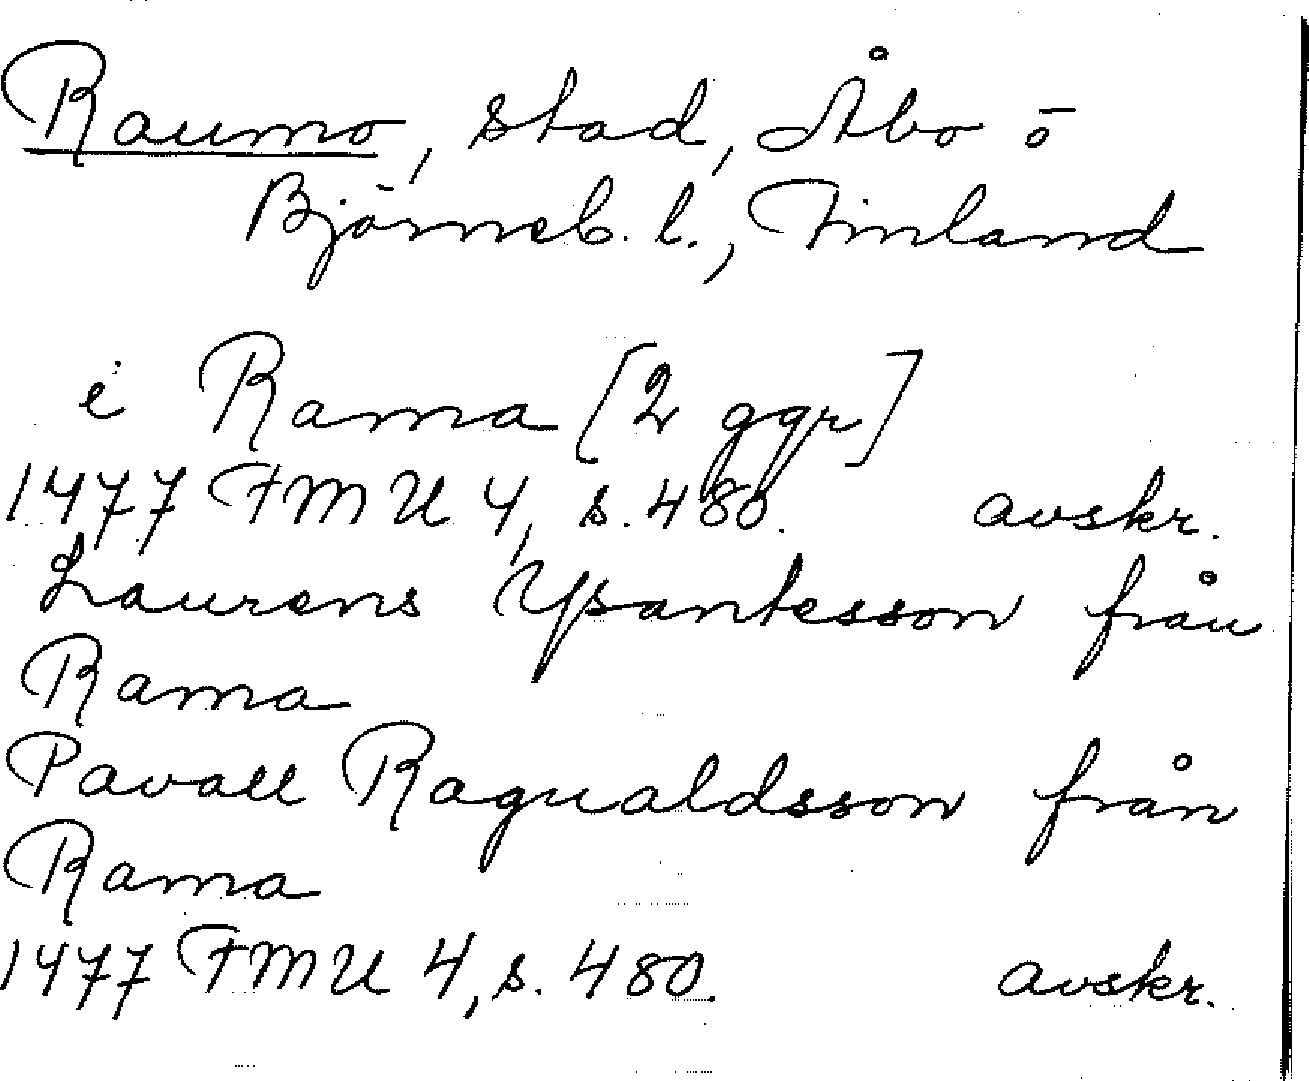 Raumo, stad, Åbo o
Björneb. l., Finland
i Rama [2 ggr]
1477 FMU 4, s. 480. avskr.
Laurens Ypantesson från
Rama
Pavall Ragualdsson från
Rama
1477 FMU 4, s. 480. avskr.